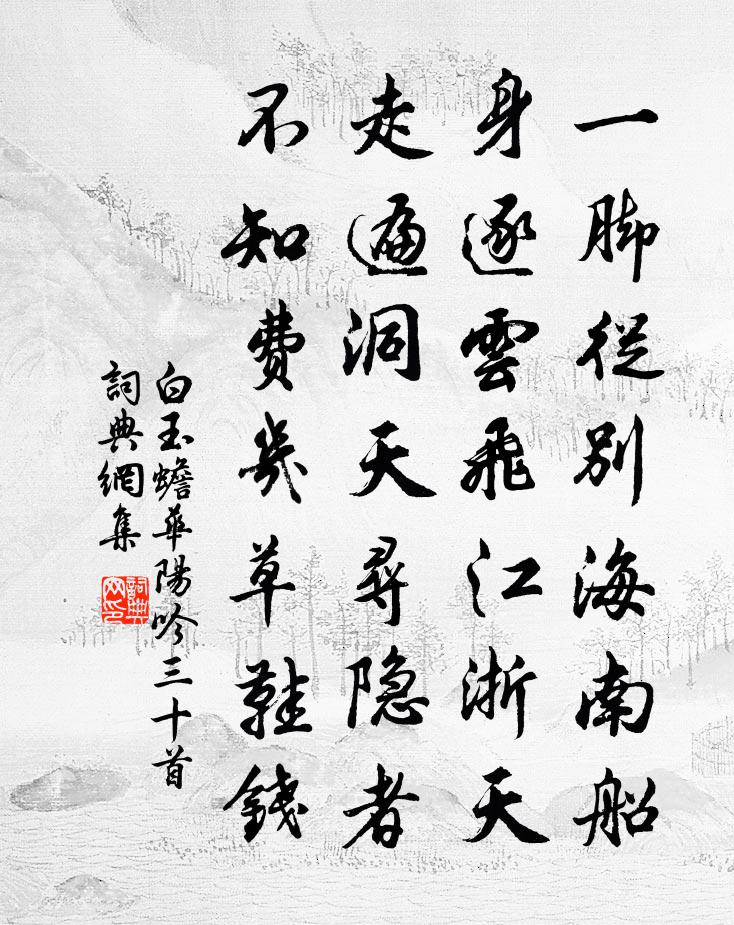 一脚從别海南船
身逐雲飛江浙天
走遍洞天尋隐者
不知費幾草鞋錢
白玉蟾華陽吟三十首
詞典網集
詞典網印